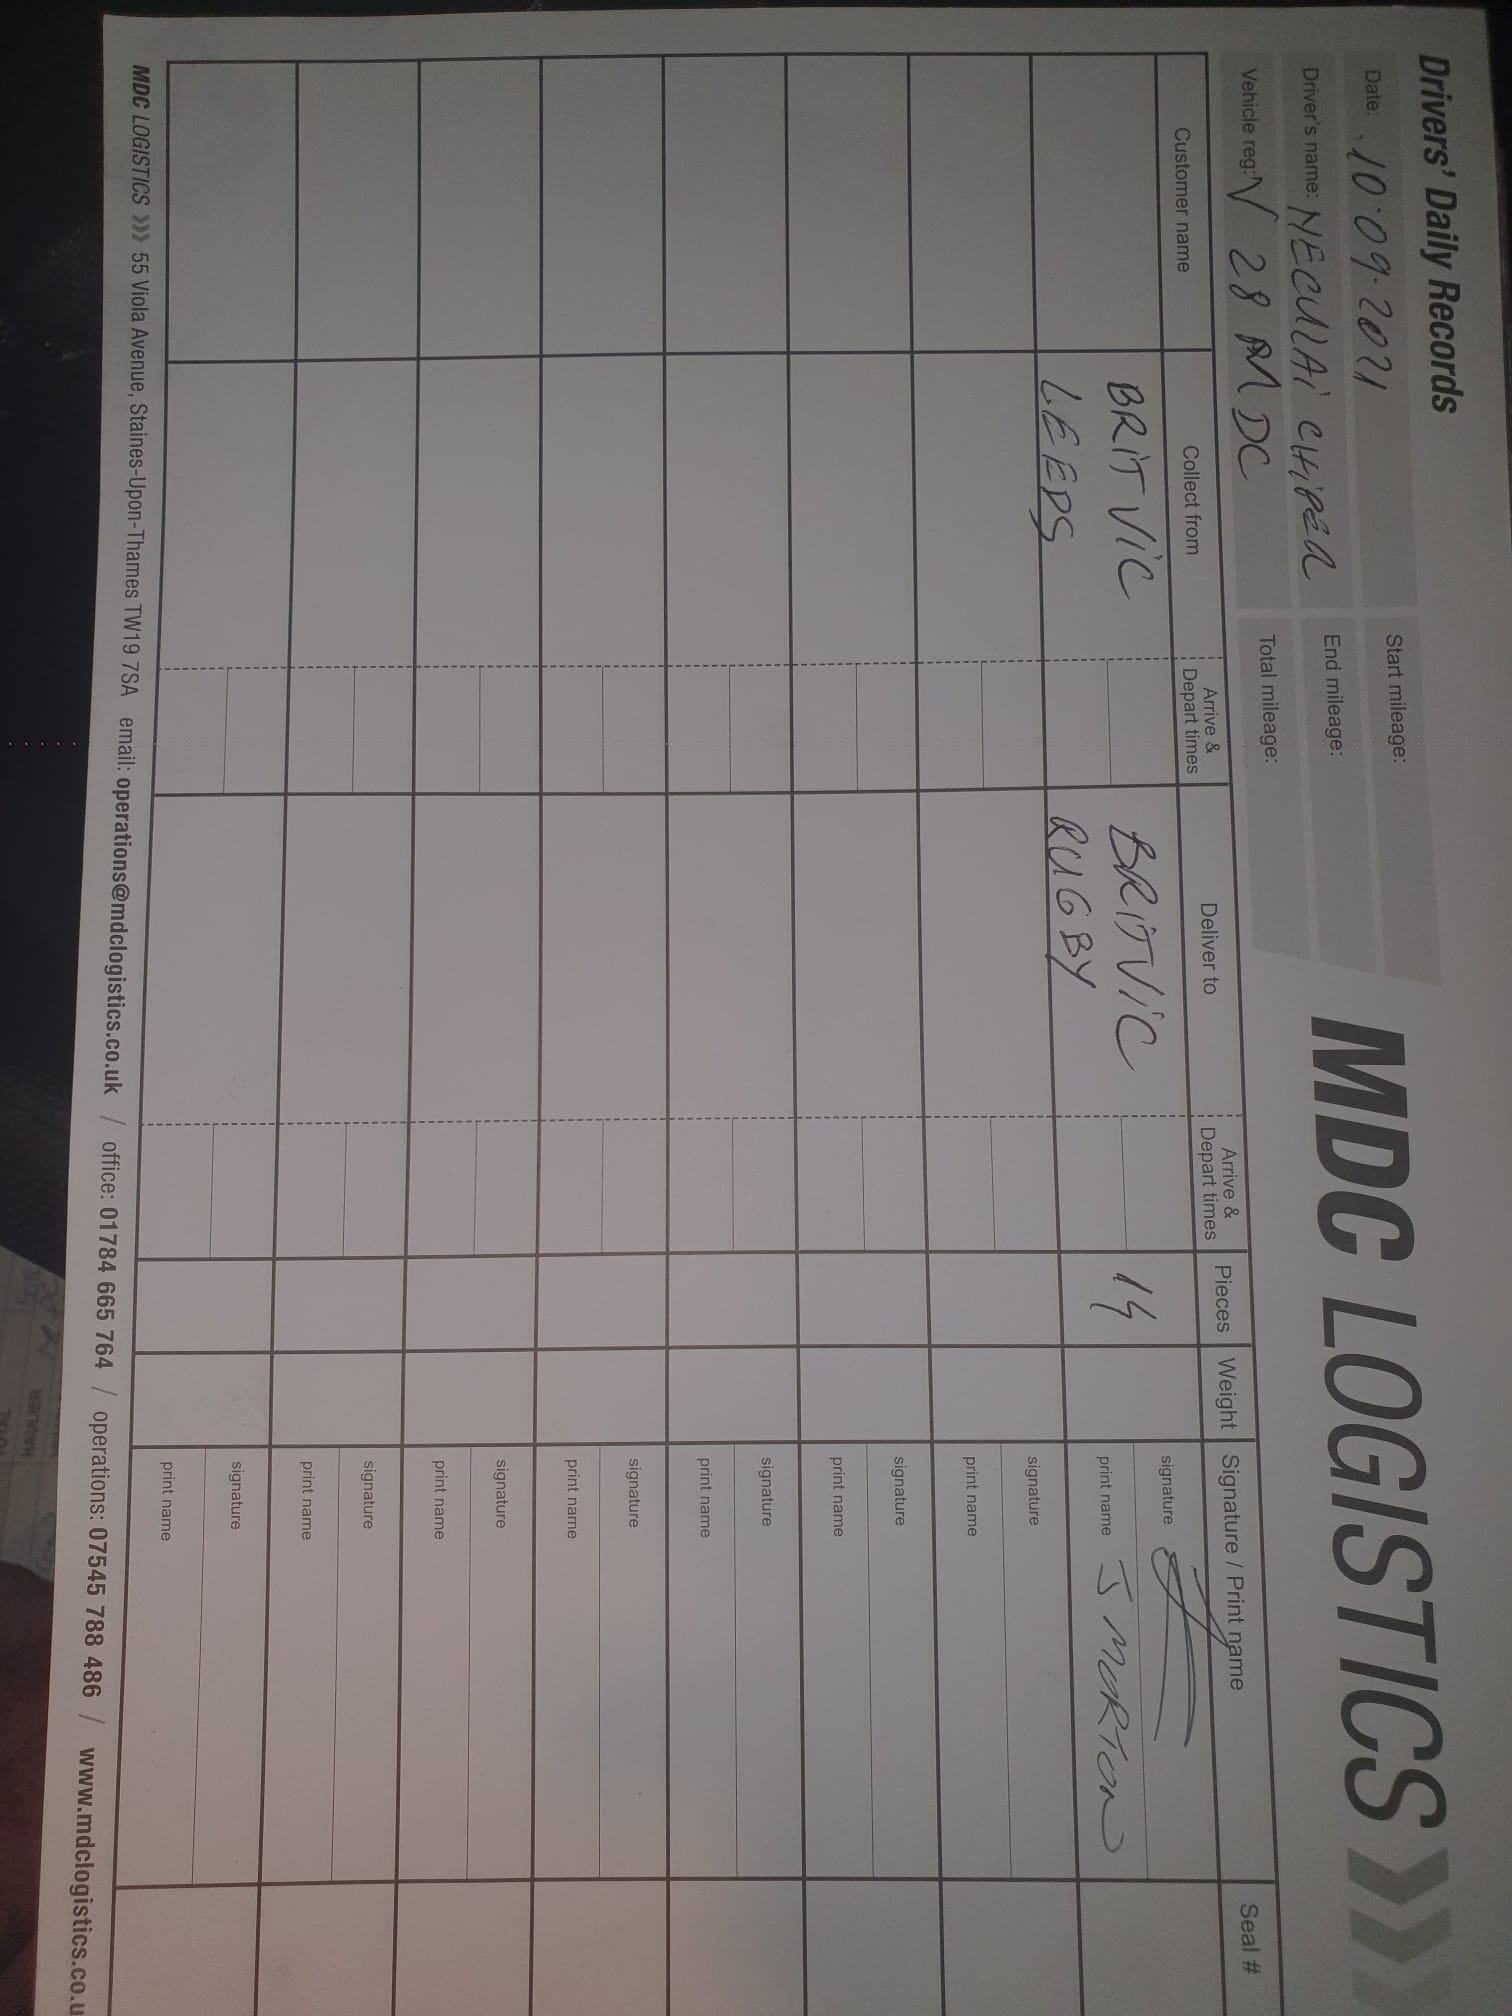 Drivers' Daily Records
MDC LOGISTICS
Date: 10.09.2021
Start mileage:
Driver's name: NECULAI CHIPER
End mileage:
Vehicle reg: V 28 MDC
Total mileage:
Customer name Collect from Arrive & Depart times Deliver to Arrive & Depart times Pieces Weight Signature / Print name Seal #
BRITVIC BRITVIC 14 signature
LEEDS RUGBY print name J MORTON
signature
print name
signature
print name
signature
print name
signature
print name
signature
print name
signature
print name
signature
print name
MDC LOGISTICS 55 Viola Avenue, Staines-Upon-Thames TW19 7SA email: operations@mdclogistics.co.uk / office: 01784 665 764 / operations: 07545 788 486 / www.mdclogistics.co.u